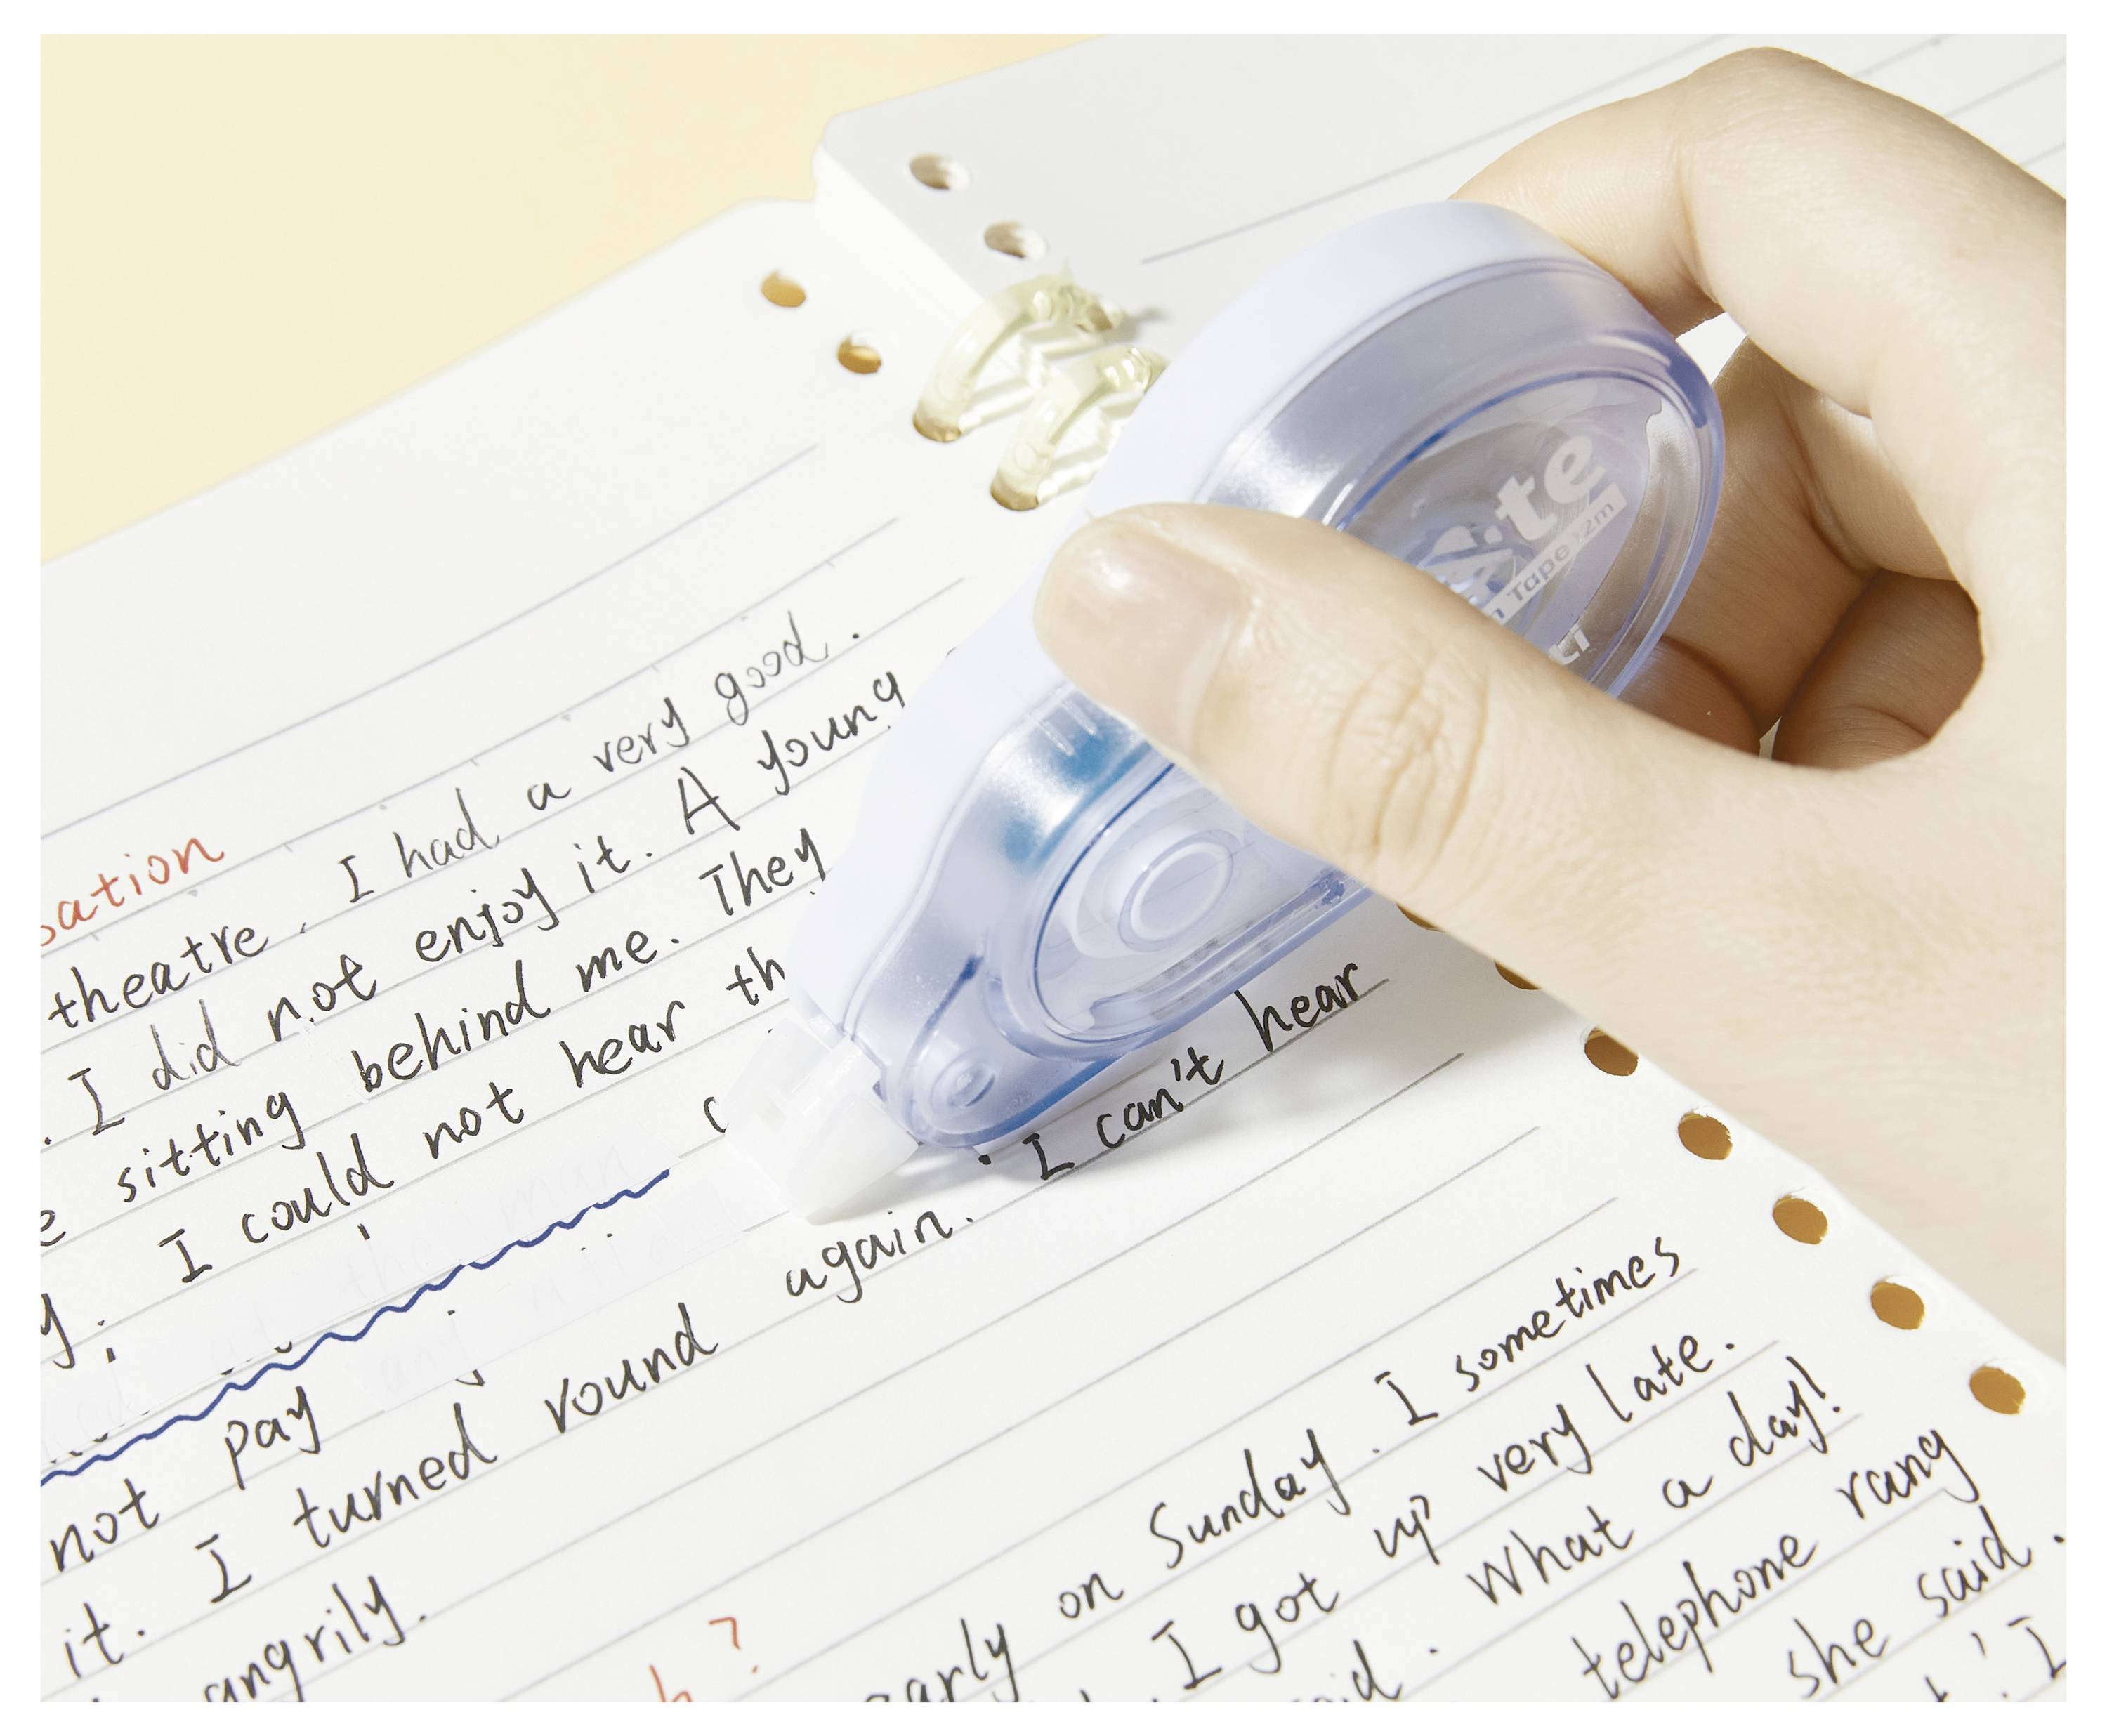 sation
theatre . I had a very good .
. I did not enjoy it. A young
sitting behind me. They
y. I could not hear th
not pay
it. I turned round again. 'I can't hear
angrily.
?
early on Sunday . I sometimes
. I got up very late.
aid . What a day!
telephone rang
she said .
I
S:te
Tape 2m
ti